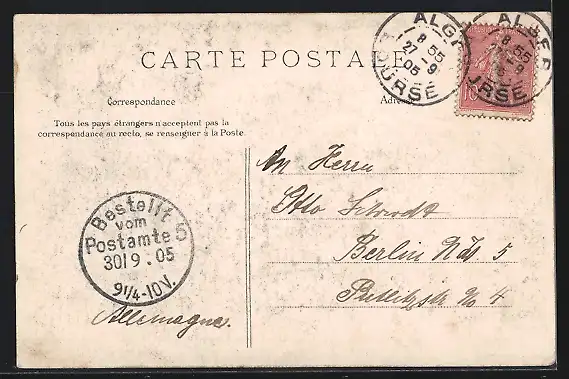 CARTE POSTALE
ALGER
8 55
27 -9
05
BOURSE
ALGER
8 55
27 -9
05
BOURSE
Correspondance
Tous les pays étrangers n'acceptent pas la
correspondance au recto, se renseigner à la Poste.
An Herrn
Otto Schmidt
Berlin 5
No 4
Bestellt
vom
Postamte 5
30/9.05
9 1/4-10V.
Allemagne.